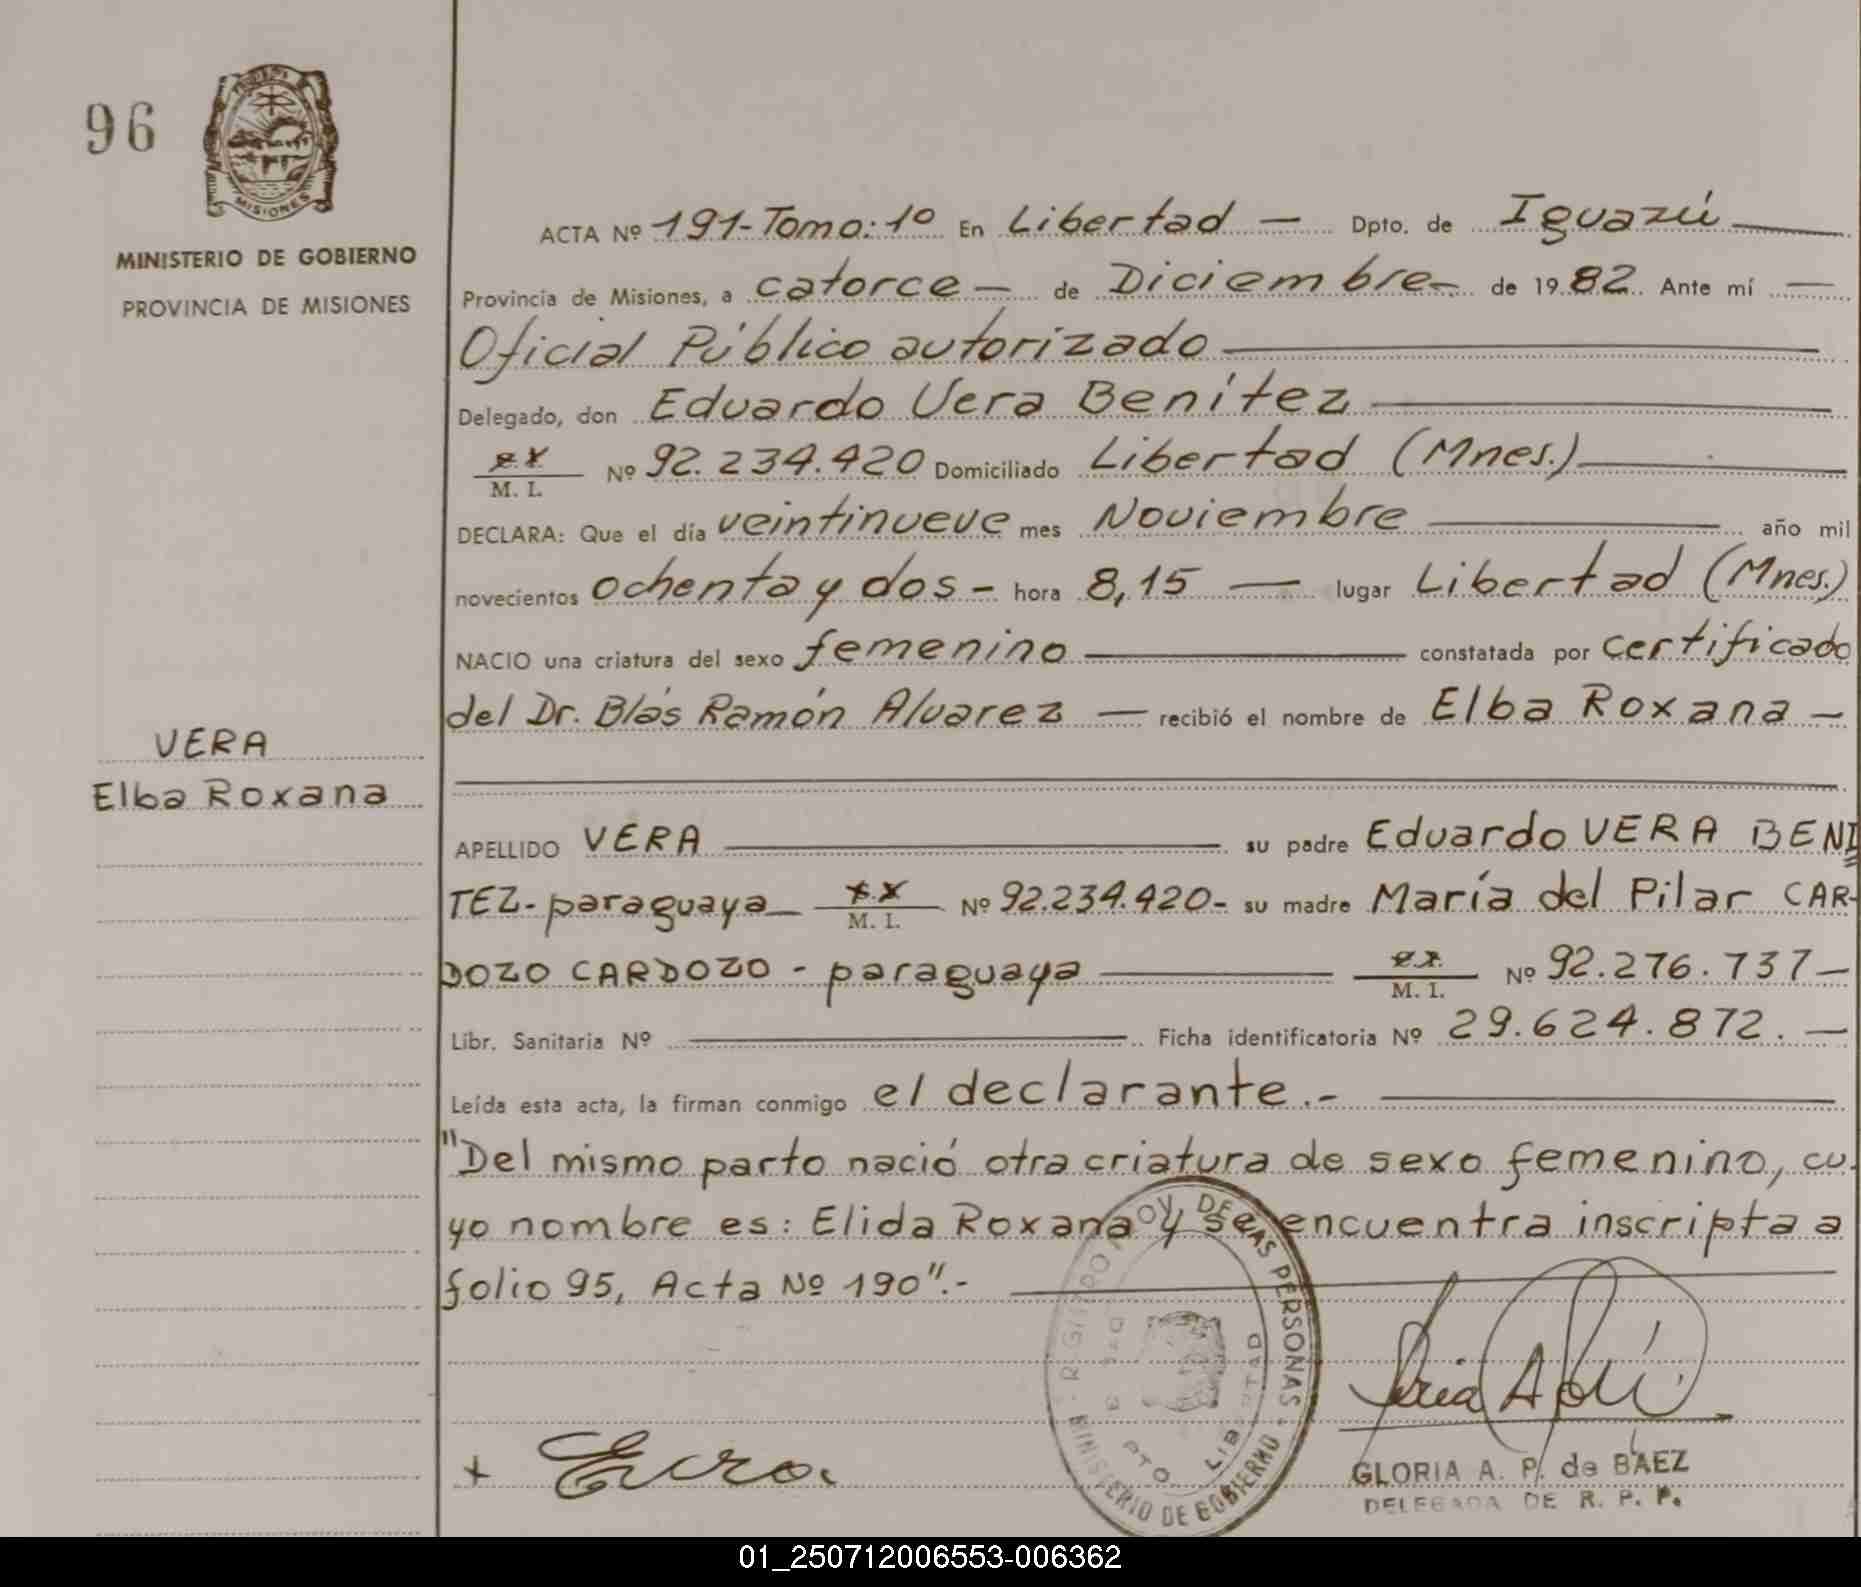 96
MISIONES
MINISTERIO DE GOBIERNO
PROVINCIA DE MISIONES
VERA
Elba Roxana
ACTA Nº 191-Tomo: 1º En Libertad — Dpto. de Iguazú
Provincia de Misiones, a catorce — de Diciembre — de 1982. Ante mí —
Oficial Público autorizado
Delegado, don Eduardo Vera Benítez
M. I. Nº 92.234.420 Domiciliado Libertad (Mnes.)
DECLARA: Que el día veintinueve mes Noviembre año mil
novecientos ochenta y dos - hora 8,15 — lugar Libertad (Mnes.)
NACIO una criatura del sexo femenino constatada por certificado
del Dr. Blás Ramón Alvarez — recibió el nombre de Elba Roxana —
APELLIDO VERA su padre Eduardo VERA BENI
TEZ- paraguaya M. I. Nº 92.234.420- su madre María del Pilar CAR-
DOZO CARDOZO - paraguaya M. I. Nº 92.276.737—
Libr. Sanitaria Nº Ficha identificatoria Nº 29.624.872. —
Leída esta acta, la firman conmigo el declarante.-
"Del mismo parto nació otra criatura de sexo femenino, cu-
yo nombre es: Elida Roxana y se encuentra inscripta a
folio 95, Acta Nº 190".-
DE LAS PERSONAS
MINISTERIO DE GOBIERNO
LIBERTAD
GLORIA A. P. de BAEZ
DELEGADA DE R. P. P.
01_250712006553-006362